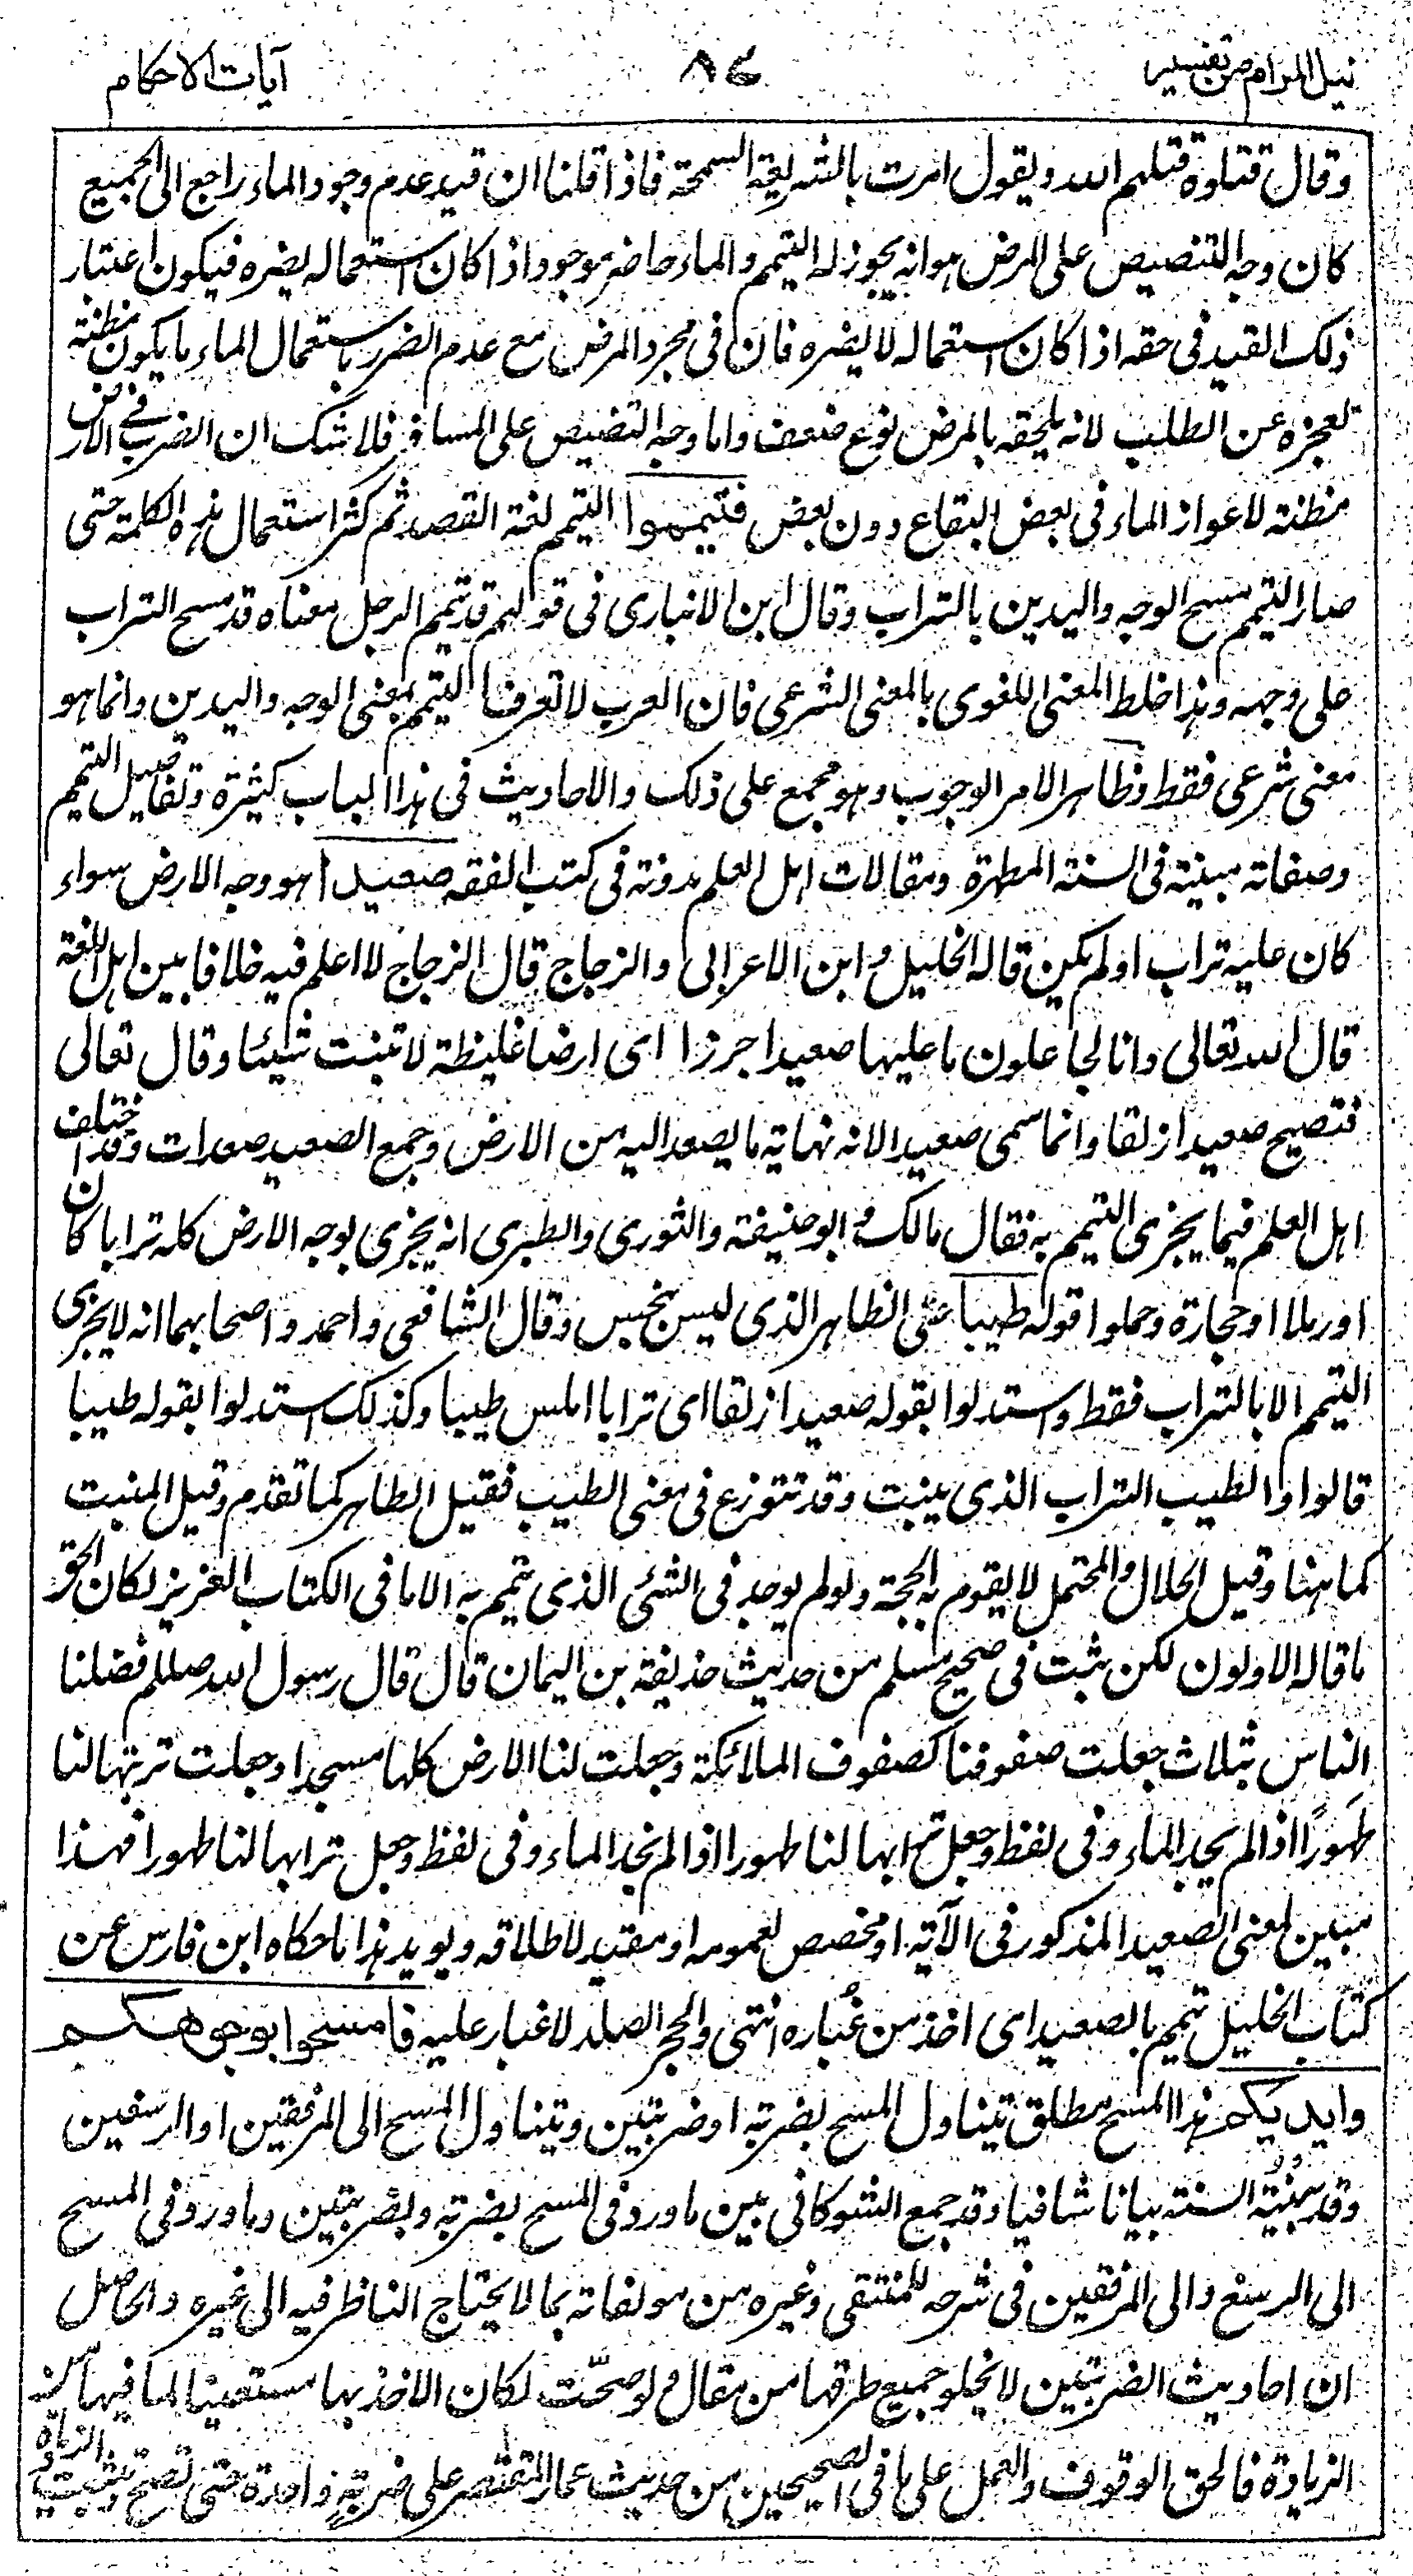 نيل المرام من تفسير
٨٤
آيات الاحكام
وقال قتلوة قتلهم الله ويقول امرت بالشريعة السمحة فاذا قلنا ان قيد عدم وجود الماء راجع الى الجميع
كان وجه التنصيص على المرض هو انه يجوز له التيمم والماء حاضر موجود اذا كان استعماله يضره فيكون اعتبار
ذلك القيد فى حقه اذا كان استعماله لا يضره فان فى مجرد المرض مع عدم الضرر باستعمال الماء ما يكون مظنة
لعجزه عن الطلب لانه يلحقه بالمرض نوع ضعف واما وجه التنصيص على المسافر فلا شك ان الضرب فى الارض
مظنة لاعواز الماء فى بعض البقاع دون بعض فتيمموا التيمم لغة القصد ثم كثر استعمال هذه الكلمة حتى
صار التيمم مسح الوجه واليدين بالتراب وقال ابن الانبارى فى قولهم قد تيمم الرجل معناه قد مسح التراب
على وجهه وهذا خلط المعنى اللغوى بالمعنى الشرعى فان العرب لا تعرف التيمم بمعنى الوجه واليدين وانما هو
معنى شرعى فقط وظاهر الامر الوجوب وهو مجمع على ذلك والاحاديث فى هذا الباب كثيرة وتفاصيل التيمم
وصفاته مبينة فى السنة المطهرة ومقالات اهل العلم مدونة فى كتب الفقه صعيدا هو وجه الارض سواء
كان عليه تراب او لم يكن قاله الخليل و ابن الاعرابى والزجاج قال الزجاج لا اعلم فيه خلافا بين اهل اللغة
قال الله تعالى وانا لجاعلون ما عليها صعيدا جرزا اى ارضا غليظة لا تنبت شيئا وقال تعالى
فتصبح صعيدا زلقا وانما سمى صعيدا لانه نهاية ما يصعد اليه من الارض وجمع الصعيد صعدات وقد اختلف
اهل العلم فيما يجزى التيمم به فقال مالك و ابو حنيفة والثورى والطبرى انه يجزى بوجه الارض كله ترابا كان
او رملا او حجارة وحملوا قوله طيبا على الطاهر الذى ليس بنجس وقال الشافعى واحمد واصحابهما انه لا يجزى
التيمم الا بالتراب فقط واستدلوا بقوله صعيدا زلقا اى ترابا املس طيبا وكذلك استدلوا بقوله طيبا
قالوا والطيب التراب الذى ينبت وقد تنوزع فى معنى الطيب فقيل الطاهر كما تقدم وقيل المنبت
كما هنا وقيل الحلال والمحتمل لا يقوم به الحجة ولو لم يوجد فى الشئ الذى تيمم به الا ما فى الكتاب العزيز لكان الحق
ما قاله الاولون لكن ثبت فى صحيح مسلم من حديث حذيفة بن اليمان قال قال رسول الله صللم فضلنا
الناس بثلاث جعلت صفوفنا كصفوف الملائكة وجعلت لنا الارض كلها مسجدا وجعلت تربتها لنا
طهورًا اذا لم يجد الماء وفى لفظ وجعل ترابها لنا طهورا اذا لم نجد الماء وفى لفظ وجعل ترابها لنا طهورا فهذا
مبين لمعنى الصعيد المذكور فى الآية او مخصص لعمومه او مقيد لاطلاقه ويؤيد هذا ما حكاه ابن فارس عن
كتاب الخليل تيمم بالصعيد اى اخذ من غباره انتهى والحجر الصلد لا غبار عليه فامسحوا بوجوهكم
وايديكم هذا المسح مطلق تيناول المسح بضربة او ضربتين ويتناول المسح الى المرفقين او الرسغين
وقد بينته السنة بيانا شافيا وقد جمع الشوكانى بين ما ورد فى المسح بضربة وبضربتين وما ورد فى المسح
الى الرسغ والى المرفقين فى شرحه للمنتقى وغيره من مولفاته بما لا يحتاج الناظر فيه الى غيره والحاصل
ان احاديث الضربتين لا يخلو جميع طرقها من مقال ولو صحّت لكان الاخذ بها مستعينا لما فيها من
الزيادة فالحق الوقوف والعمل على ما فى الصحيحين من حديث عمار المقتصر على ضربة واحدة حتى تصح وتثبت الزيادة